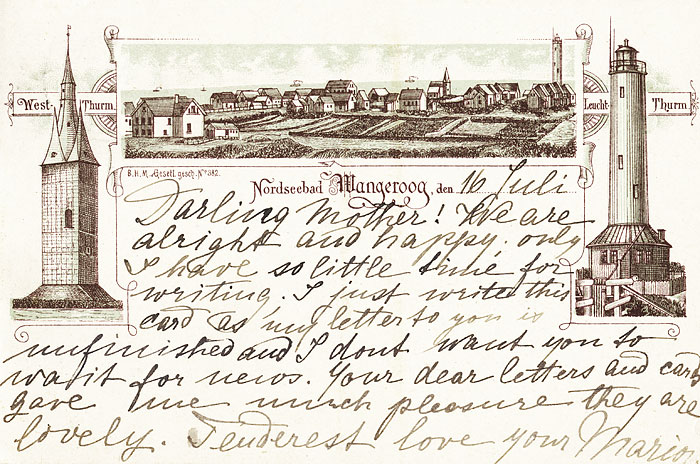 West- Thurm.
Leucht- Thurm.
B.H.M. Gesetl. gesch. No 382.
Nordseebad Wangeroog, den 16 Juli
Darling Mother! We are
alright and happy. only
I have so little time for
writing. I just write this
card as my letter to you is
unfinished and I dont want you to
wait for news. Your dear letters and cards
gave me much pleasure they are
lovely. Tenderest love your Marion.